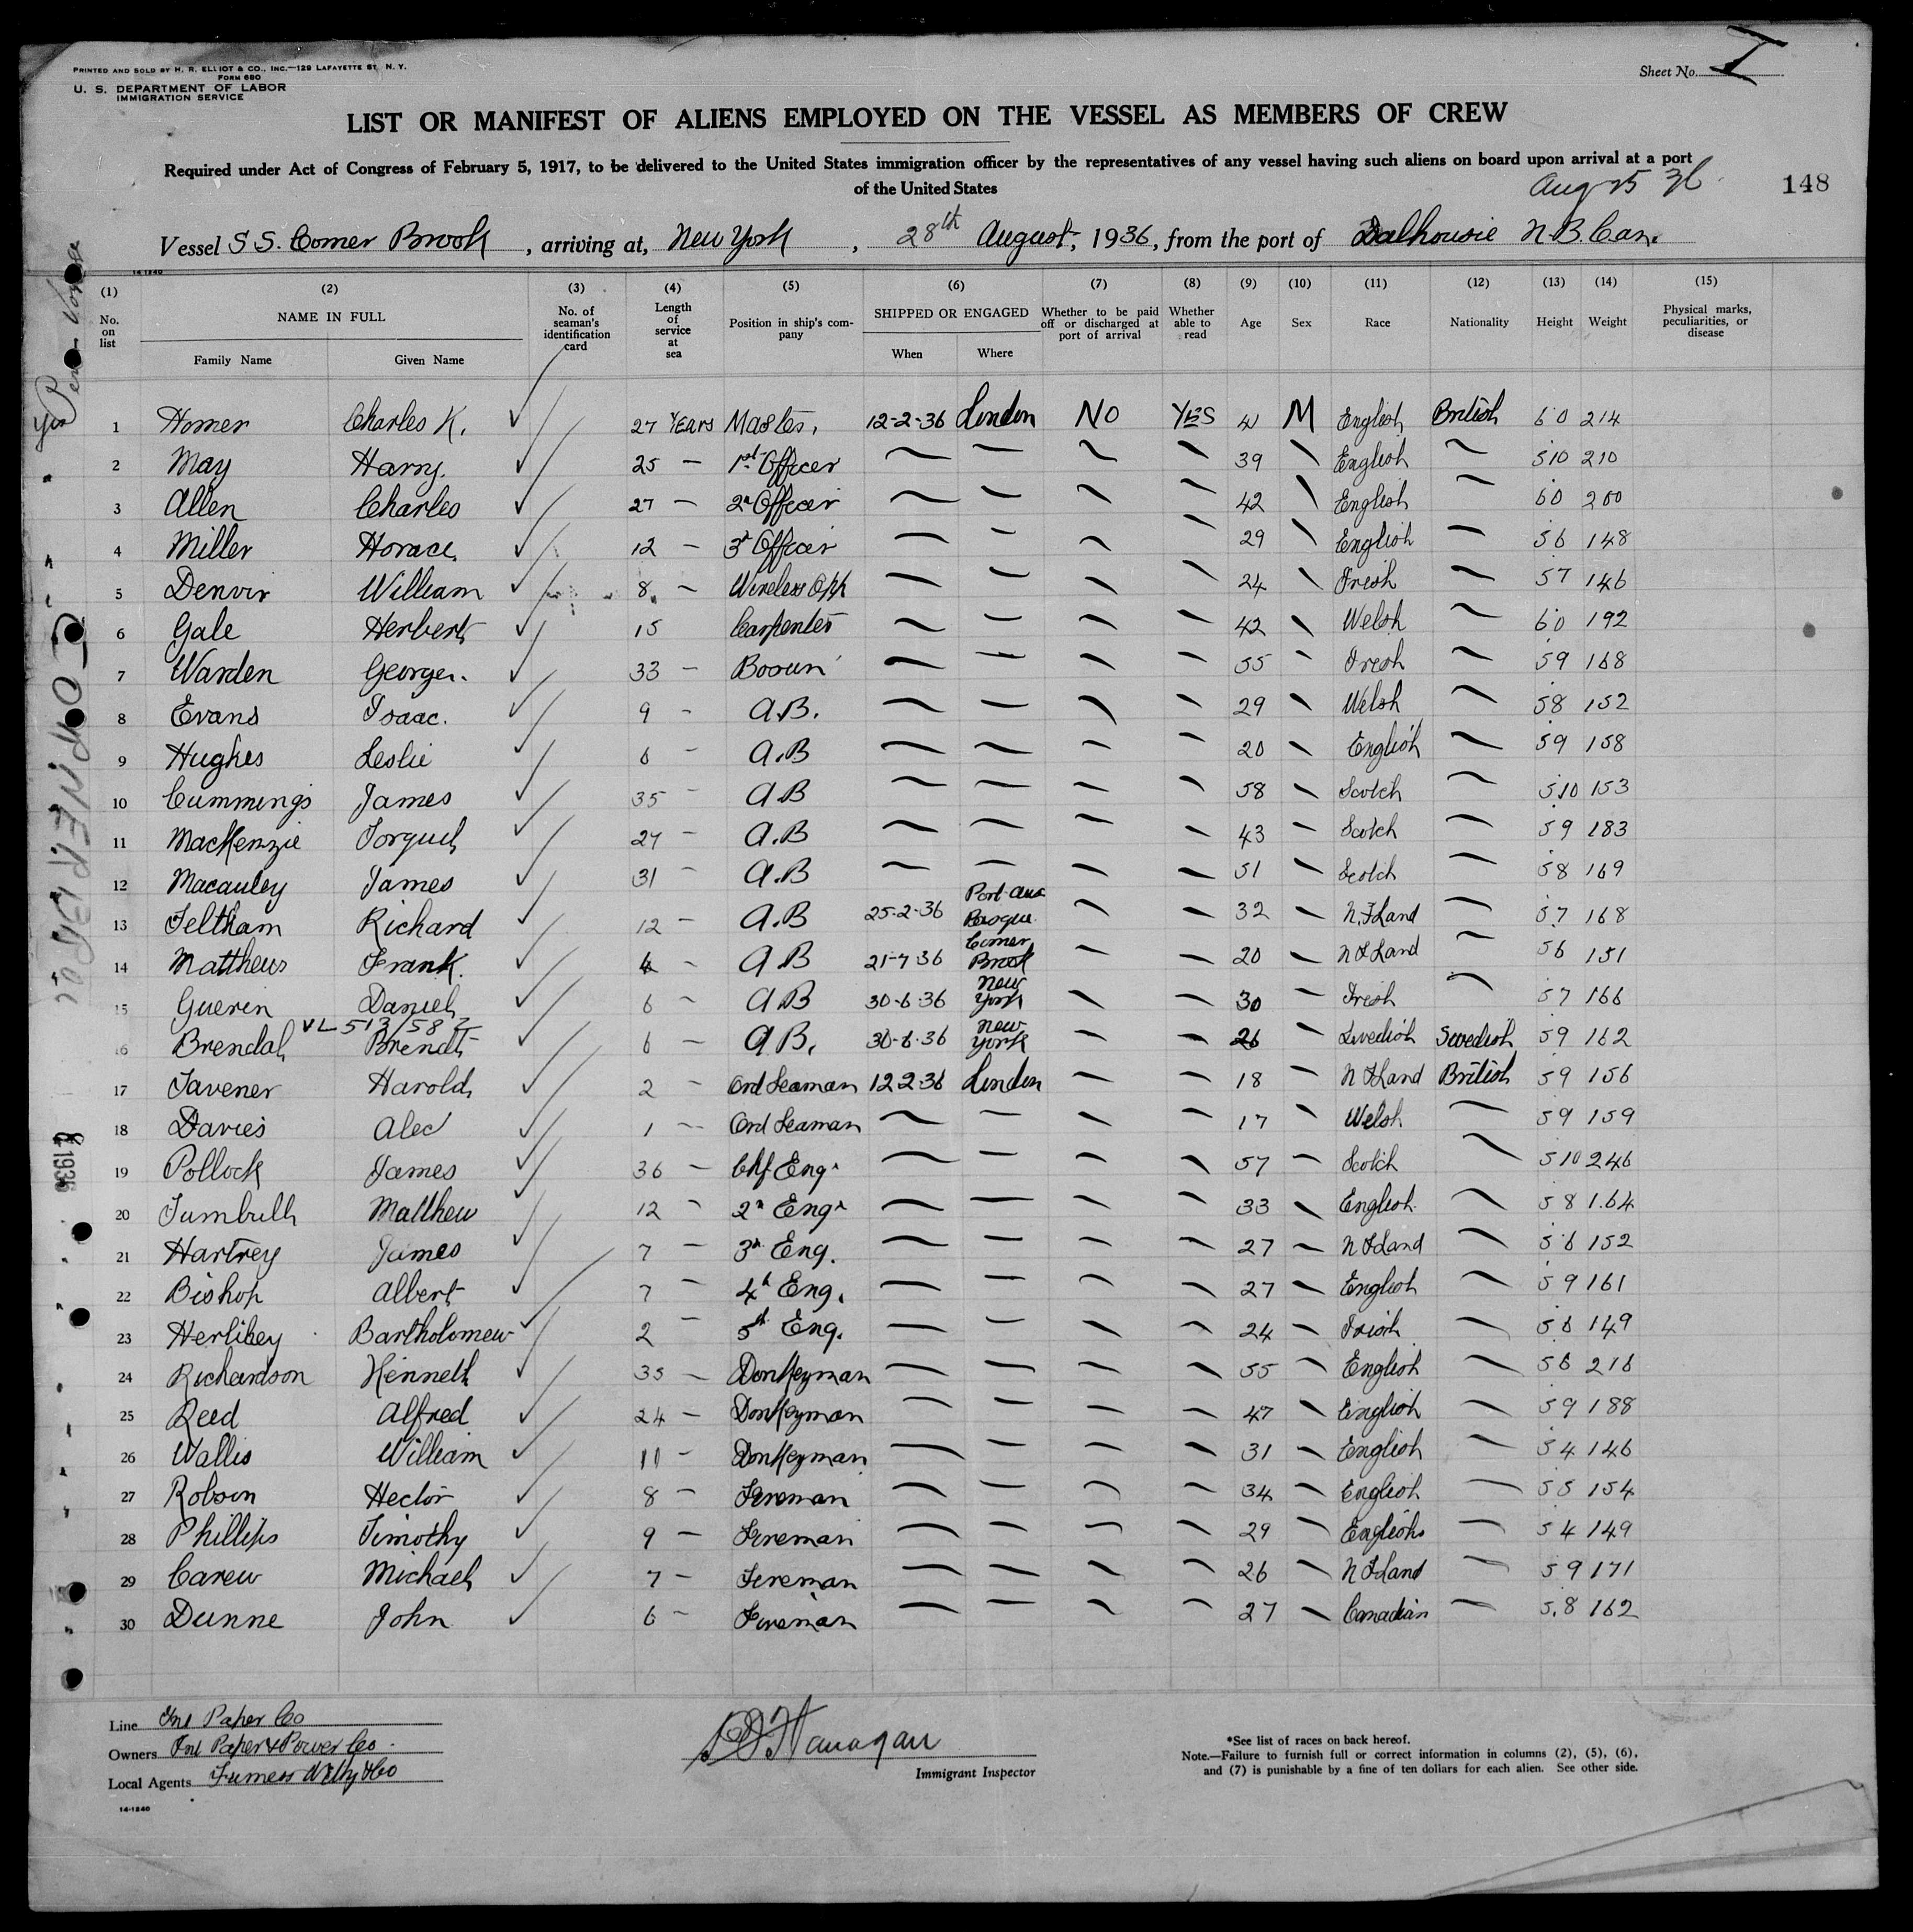 PRINTED AND SOLD BY H. R. ELLIOT & CO., INC.—129 LAFAYETTE ST. N. Y.
FORM 680
U. S. DEPARTMENT OF LABOR
IMMIGRATION SERVICE
Sheet No. I
LIST OR MANIFEST OF ALIENS EMPLOYED ON THE VESSEL AS MEMBERS OF CREW
Required under Act of Congress of February 5, 1917, to be delivered to the United States immigration officer by the representatives of any vessel having such aliens on board upon arrival at a port
of the United States
Aug 25 36
148
Vessel S S. Corner Brook, arriving at, New York, 28th August, 1936, from the port of Dalhousie N.B. Can.
14-1240
(1) (2) (3) (4) (5) (6) (7) (8) (9) (10) (11) (12) (13) (14) (15)
No. on list NAME IN FULL Family Name Given Name No. of seaman's identification card Length of service at sea Position in ship's company SHIPPED OR ENGAGED When Where Whether to be paid off or discharged at port of arrival Whether able to read Age Sex Race Nationality Height Weight Physical marks, peculiarities, or disease
1 Homer Charles K. ✓ 27 YEARS Master, 12-2-36 London NO YES 41 M English British 6 0 214
2 May Harry. ✓ 25 — 1st Officer — — — — 39 — English — 5 10 210
3 Allen Charles ✓ 27 — 2n Officer — — — — 42 — English — 6 0 200
4 Miller Horace. ✓ 12 — 3d Officer — — — — 29 — English — 5 6 148
5 Denvir William ✓ 8 — Wireless Opp — — — — 24 — Irish — 5 7 146
6 Gale Herbert ✓ 15 Carpenter — — — — 42 — Welsh — 6 0 192
7 Warden George. ✓ 33 — Bosun — — — — 55 — Irish — 5 9 168
8 Evans Isaac. ✓ 9 — A.B. — — — — 29 — Welsh — 5 8 152
9 Hughes Leslie ✓ 6 — A.B — — — — 20 — English — 5 9 158
10 Cummings James ✓ 35 — A B — — — — 58 — Scotch — 5 10 153
11 MacKenzie Torquil ✓ 27 — A.B — — — — 43 — Scotch — 5 9 183
12 Macauley James ✓ 31 — A.B — — — — 51 — Scotch — 5 8 169
13 Feltham Richard ✓ 12 — A.B 25-2-36 Port Aux Basque — — 32 — N. F Land — 5 7 168
14 Matthews Frank. ✓ 4 — A B 21-7-36 Corner Brook — — 20 — N F Land — 5 6 151
15 Guerin Daniel ✓ 6 — A B 30-6-36 New York — — 30 — Irish — 5 7 166
VL 513/582
16 Brendal Brendt ✓ 6 — A B. 30-6-36 New York — — 26 — Swedish Swedish 5 9 162
17 Tavener Harold ✓ 2 — Ord Seaman 12-2-36 London — — 18 — N F Land British 5 9 156
18 Davies Alec ✓ 1 — Ord Seaman — — — — 17 — Welsh — 5 9 159
19 Pollock James ✓ 36 — Chf Engr — — — — 57 — Scotch — 5 10 246
20 Turnbull Matthew ✓ 12 — 2n Engr — — — — 33 — English — 5 8 164
21 Hartrey James ✓ 7 — 3d Eng. — — — — 27 — N F Land — 5 6 152
22 Bishop Albert ✓ 7 — 4th Eng. — — — 27 — English — 5 9 161
23 Herlihey Bartholomew ✓ 2 — 5th Eng. — — — — 24 — Irish — 5 6 149
24 Richardson Kenneth ✓ 35 — Donkeyman — — — — 55 — English — 5 6 216
25 Reed Alfred ✓ 24 — Donkeyman — — — — 47 — English — 5 9 188
26 Wallis William ✓ 10 — Donkeyman — — — — 31 — English — 5 4 146
27 Robson Hector ✓ 8 — Fireman — — — — 34 — English — 5 5 154
28 Phillips Timothy ✓ 9 — Fireman — — — — 29 — English — 5 4 149
29 Carew Michael ✓ 7 — Fireman — — — — 26 — N F Land — 5 9 171
30 Dunne John ✓ 6 — Fireman — — — — 27 — Canadian — 5.8 162
Line Inl Paper Co
Owners Inl Paper & Power Co.
Local Agents Furness Withy & Co
14-1240
Flanagan
Immigrant Inspector
*See list of races on back hereof.
Note.—Failure to furnish full or correct information in columns (2), (5), (6),
and (7) is punishable by a fine of ten dollars for each alien. See other side.